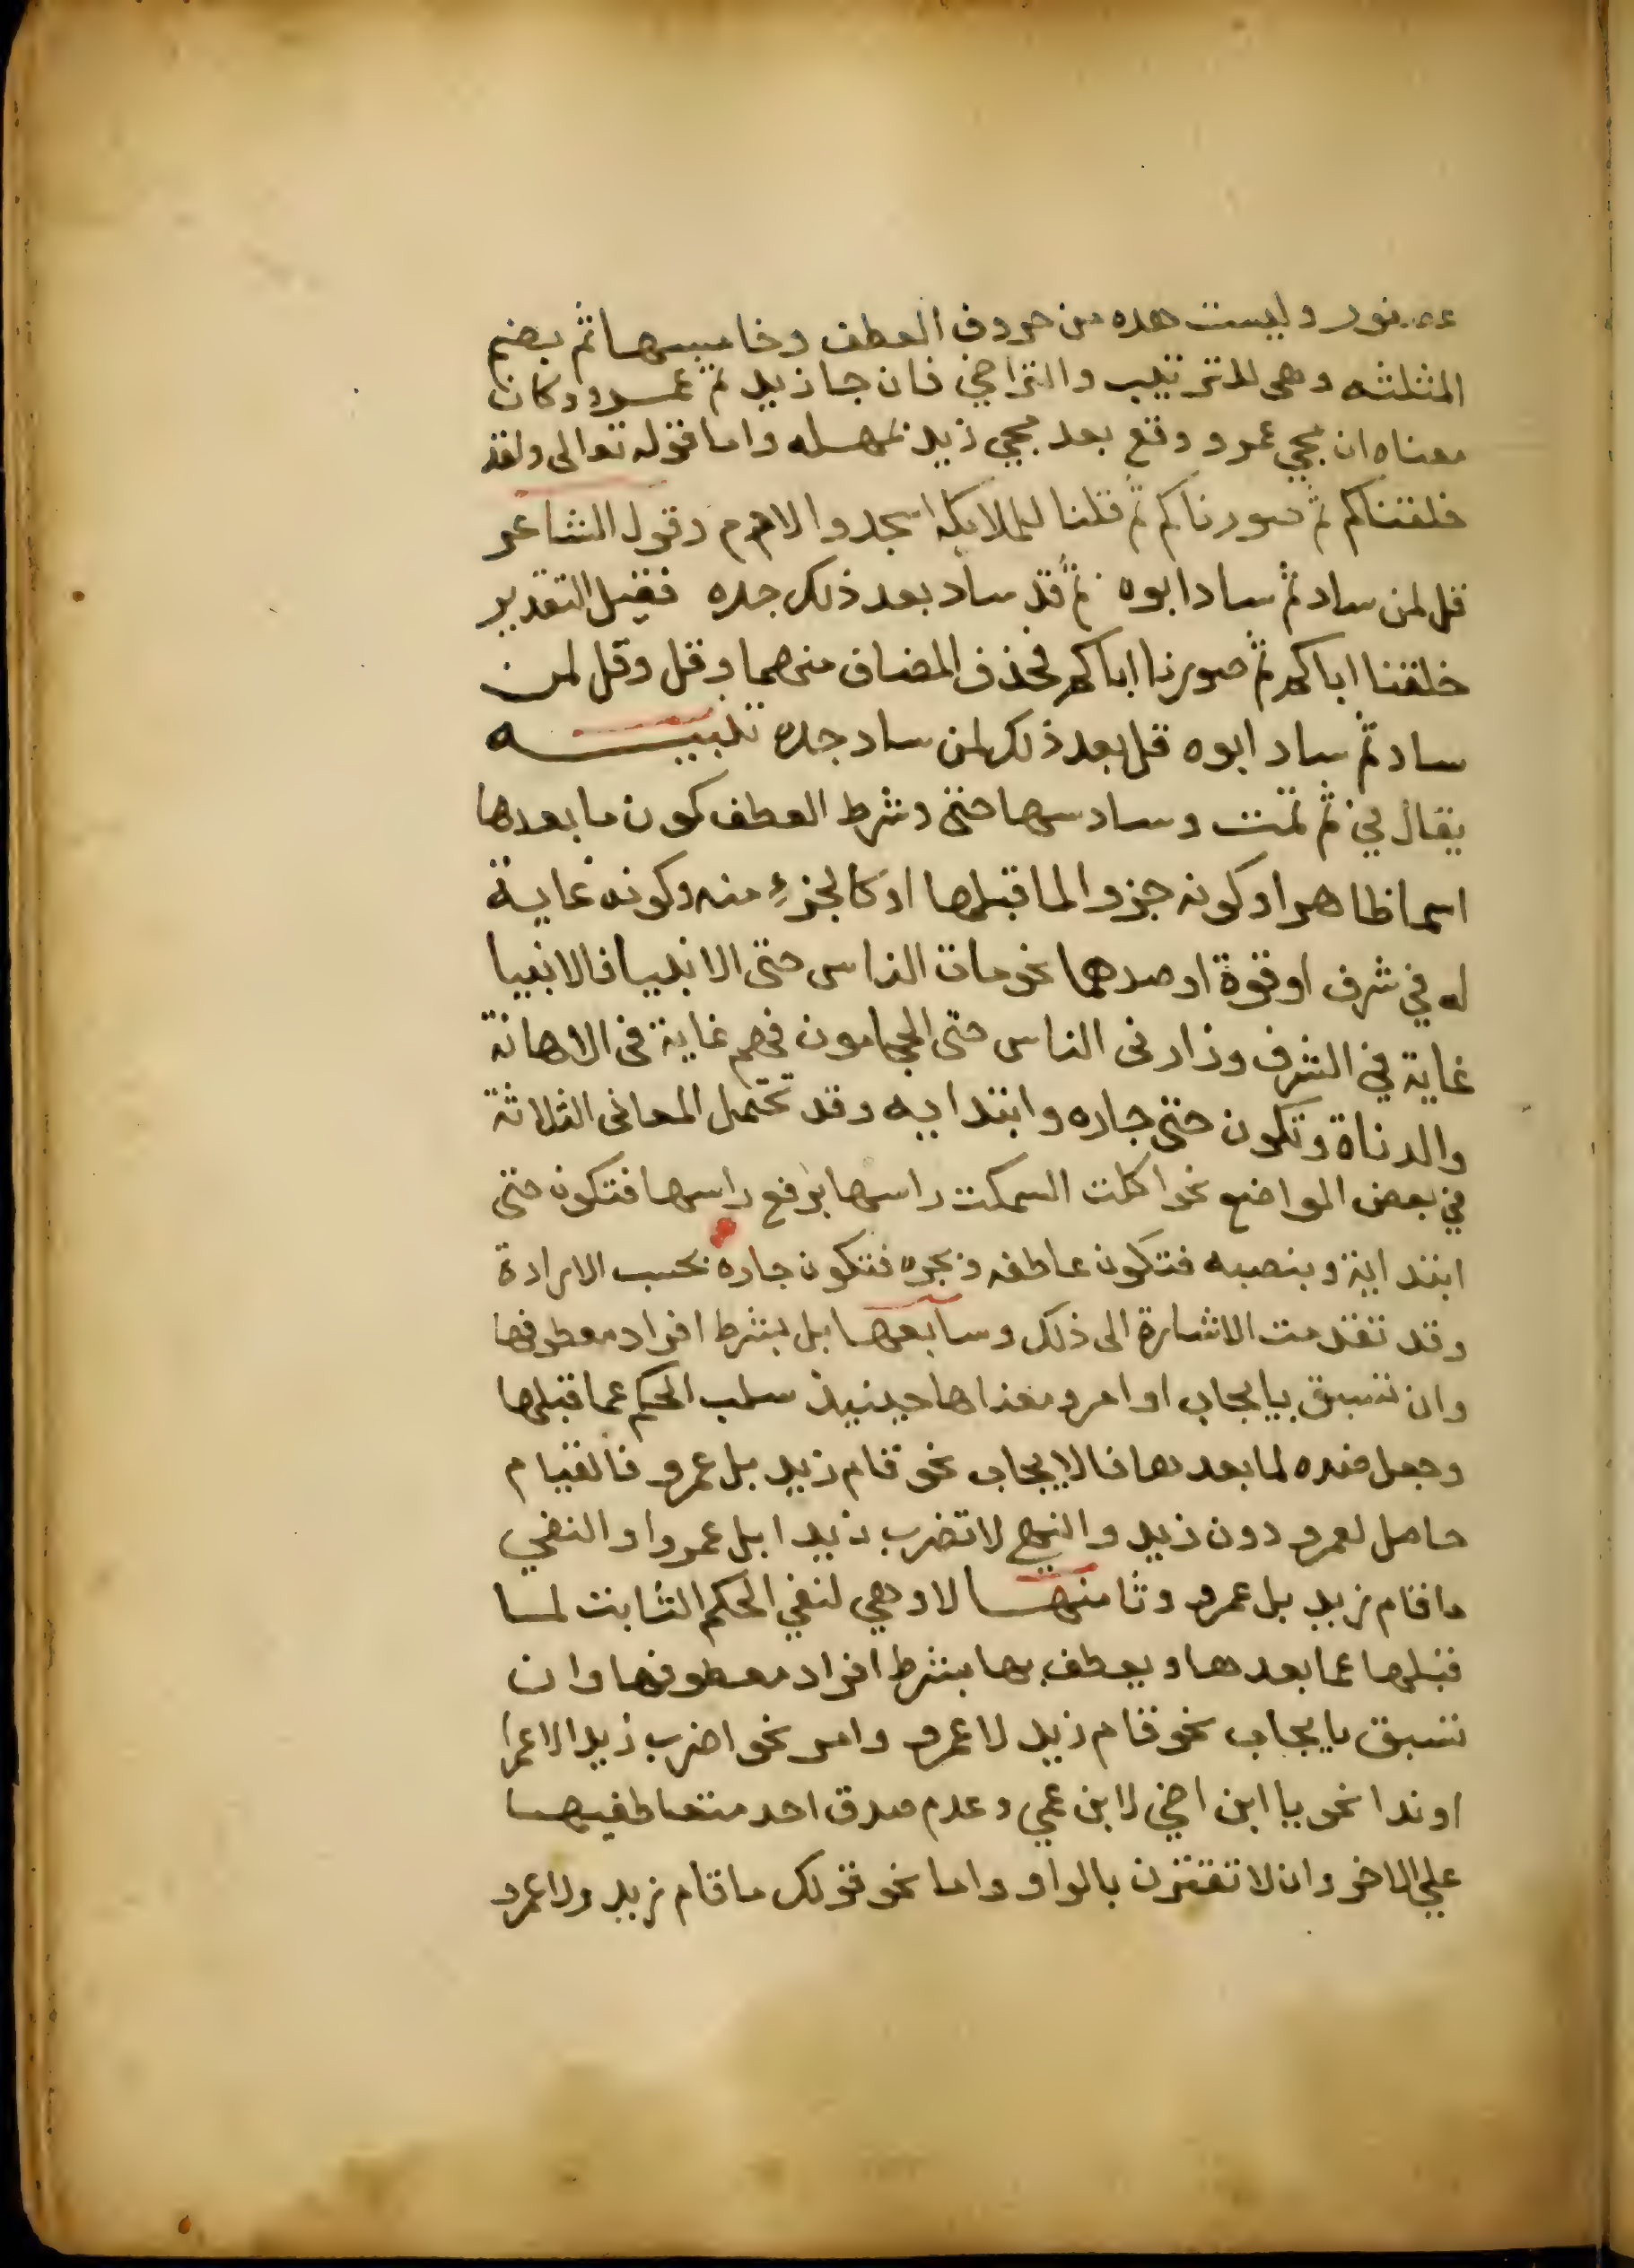 عصفور وليست هذه من حروف العطف وخامسها ثم بضم
المثلثه وهي للترتيب والتراخي فان جا زيد ثم عمرو وكان
معناه ان مجي عمرو وقع بعد مجي زيد بمهله واما قوله تعالى ولقد
خلقناكم ثم صورناكم ثم قلنا للملايكه اسجدوا لادم وقول الشاعر
قل لمن ساد ثم ساد ابوه ثم قد ساد بعد ذلك جده فقيل التقدير
خلقنا اباكم ثم صورنا اباكم فحذف المضاف منهما وقل وقل لمن
ساد ثم ساد ابوه قل بعد ذلك لمن ساد جده تنبيـــه
يقال في ثم ثمت وسادسها حتى وشرط العطف كون ما بعدها
اسما ظاهرا وكونه جزوا لما قبلها او كالجزء منه وكونه غاية
له في شرف او قوة او ضدهما نحو مات الناس حتى الانبيا فالانبيا
غاية في الشرف وزارنى الناس حتى الحجامون فهم غاية فى الاهانة
والدناة وتكون حتى جاره وابتدايه وقد تحتمل المعانى الثلاثة
في بعض المواضع نحو اكلت السمكت راسها برفع راسها فتكون حتى
ابتداية وبنصبه فتكون عاطفه وبجره فتكون جاره بحسب الارادة
وقد تقدمت الاشارة الى ذلك وسابعها بل بشرط افراد معطوفها
وان تسبق بايجاب او امر ومعناها حينيذ سلب الحكم عما قبلها
وجعل ضده لما بعدها فالايجاب نحو قام زيد بل عمرو فالقيام
حاصل لعمرو دون زيد والنهي لا تضرب زيدا بل عمروا والنفي
ما قام زيد بل عمرو وثامنهـا لا وهي لنفي الحكم الثابت لمـا
قبلها عما بعدها ويعطف بها بشرط افراد معطوفها وان
تسبق بايجاب نحو قام زيد لا عمرو وامر نحو اضرب زيدا لا عمرا
او ندا نحو يا ابن اخي لا ابن عمي وعدم صدق احد متعاطفيهـا
علي الاخر وان لا تقترن بالواو واما نحو قولك ما قام زيد ولا عمرو